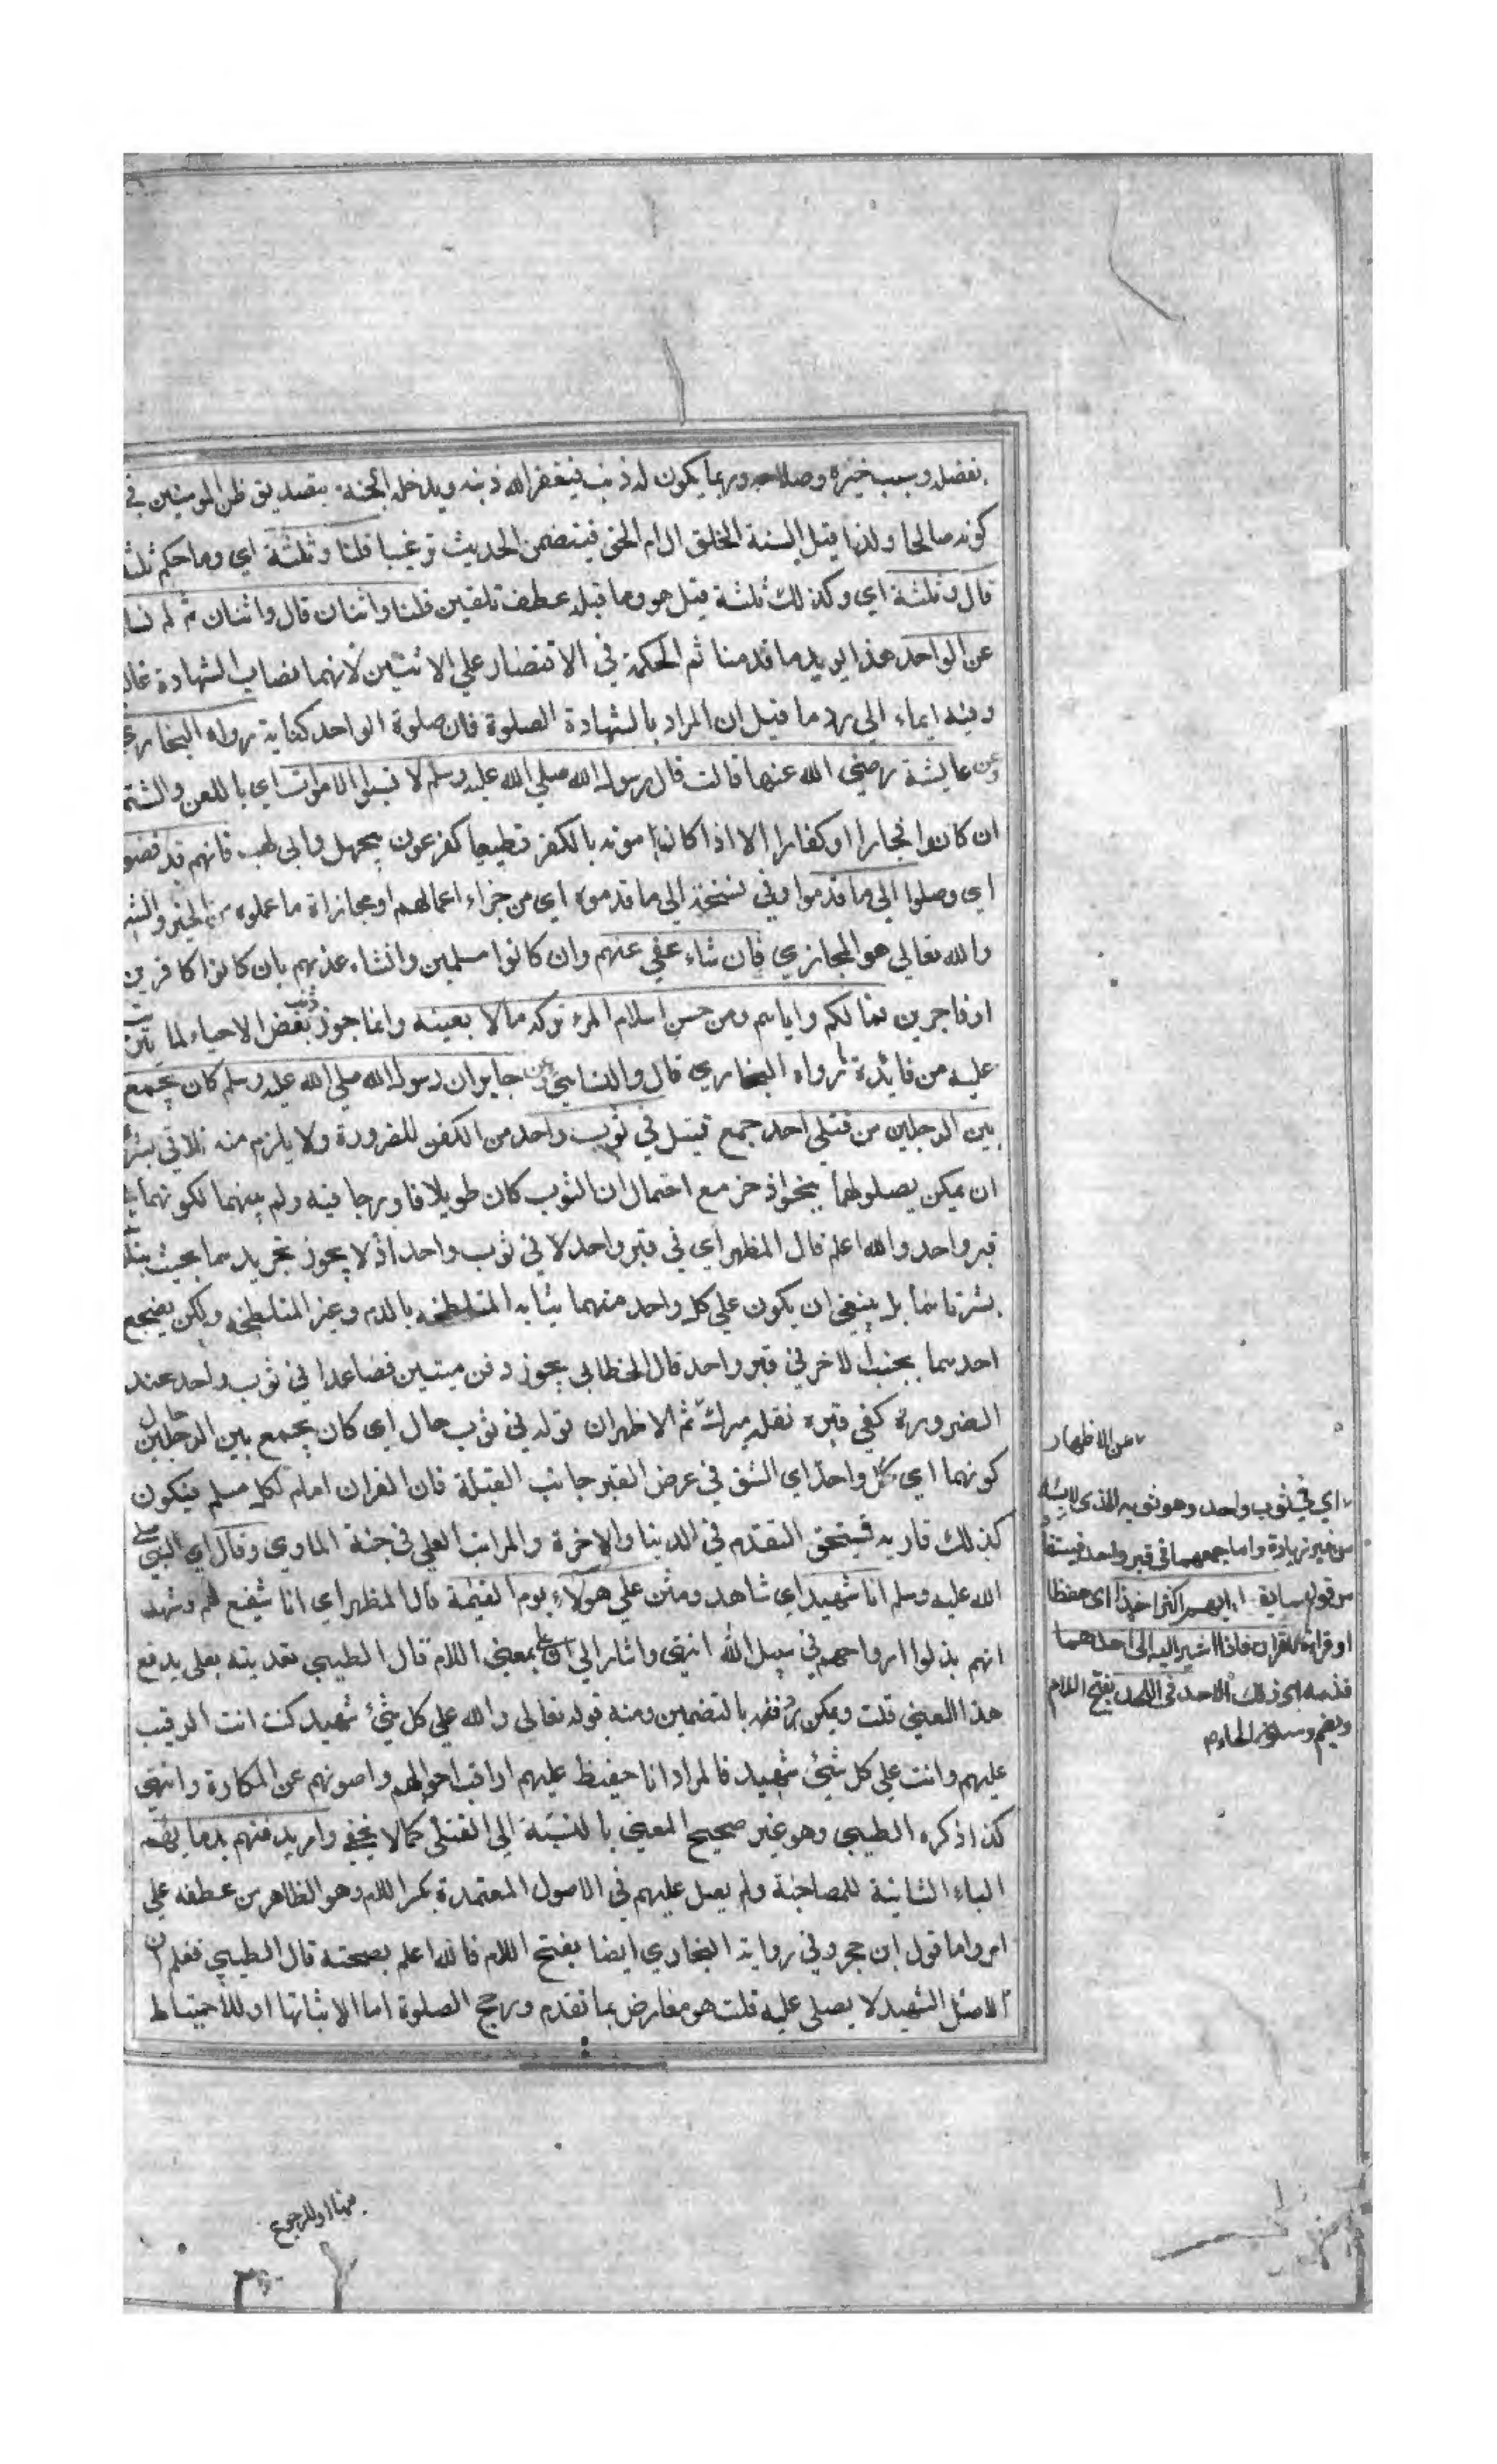 بفضله وبسبب خيره وصلاحه وربما يكون له ذنب فيغفر الله ذنبه ويدخله الجنة بتصديق ظن المومنين في
كونه صالحا ولذا قيل السنة الخلق اقلام الحق فيتضمن الحديث ترغيبا قلنا وثلثة اي وما حكم ثلثة
قال وثلثة اي وكذلك ثلثة قيل هو وما قبله عطف تلقين قلنا واثنان قال واثنان ثم لم نسا
عن الواحد هذا يويد ما قدمنا ثم الحكمة في الاقتصار علي الاثنين لانهما نصاب الشهادة غالبا
وفيه ايماء الي رد ما قيل ان المراد بالشهادة الصلوة فان صلوة الواحد كفاية رواه البخاري
وعن عايشة رضي الله عنها قالت قال رسول الله صلي الله عليه وسلم لا تسبوا الاموات اي باللعن والشتم
ان كانوا فجارا او كفارا الا اذا كان موته بالكفر قطعيا كفرعون وابي لهب فانهم قد افضوا
اي وصلوا الي ما قدموا وفي نسخة الي ما قدموه اي من جزاء اعمالهم او مجازاة ما عملوه من الخير والشر
والله تعالي هو المجازي فان شاء عفي عنهم وان كانوا مسلمين وان شاء عذبهم بان كانوا كافرين
او فاجرين فما لكم واياهم ومن حسن اسلام المرء تركه ما لا يعنيه وانما جوز ذنب بعض الاحياء لما يترتب
عليه من فائدة رواه البخاري قال والنسايي وعن جابر ان رسول الله صلي الله عليه وسلم كان يجمع
بين الرجلين من قتلي احد جمع قتيل في ثوب واحد من الكفن للضرورة ولا يلزم منه تلاقي بشر
ان يمكن حيلولتهما بنحو اذخر مع احتمال ان الثوب كان طويلا فادرجا فيه ولم يفصل بينهما لكونهما في
قبر واحد والله اعلم قال المظهر اي في قبر واحد لا في ثوب واحد اذ لا يجوز تجريدهما بحيث يتلاقي
بشرتاهما بل ينبغي ان يكون علي كل واحد منهما ثيابه المتلطخة بالدم وغير المتلطخة ولكن يضجع
احدهما بجنب الاخر في قبر واحد قال الخطابي يجوز دفن ميتين فصاعدا في ثوب واحد عند
الضرورة كفي قبره نقله ميرك ثم الاظهر ان قوله في ثوب حال اي كان يجمع بين الرجلين حال
كونهما اي كل واحد اي الشق في عرض القبر جانب القبلة فان القران امام لكل مسلم فيكون
كذلك قاريه فيستحق التقدم في الدنيا والاخرة والمراتب العلي في جنة الماوي وقال اي النبي صلي
الله عليه وسلم انا شهيد اي شاهد ومثن علي هولاء يوم القيمة قال المظهر اي انا شفيع لهم وشهد
انهم بذلوا ارواحهم في سبيل الله انتهي واشار الي ان علي بمعني اللام قال الطيبي تعديته بعلي يدفع
هذا المعني قلت ويمكن دفعه بالتضمين ومنه قوله تعالي والله علي كل شيء شهيد كنت انت الرقيب
عليهم وانت علي كل شيء شهيد فالمراد انا حفيظ عليهم اراقب احوالهم واصونهم عن المكاره انتهي
كذا ذكره الطيبي وهو غير صحيح المعني بالنسبة الي القتلي كما لا يخفي وامر بدفنهم بدمايهم
الباء الثانية للمصاحبة ولم يصل عليهم في الاصول المعتمدة بكسر اللام وهو الظاهر من عطفه علي
امر واما قول ابن حجر وفي رواية البخاري ايضا بفتح اللام فالله اعلم بصحته قال الطيبي فعلم ان
الشهيد لا يصلي عليه قلت هو معارض بما تقدم ورجح الصلوة اما لاثباتها او للاحتياط
عن الاظهار
اي في ثوب واحد وهو ثوبه الذي لابسه
من غير زيادة واما جمعهما في قبر واحد فيستفا
من قوله ايهم اكثر اخذا اي حفظا
او قراءة للقران فاذا اشير اليه الي احدهما
قدمه اي ذلك الاحد في اللحد بفتح اللام
وبضم وسكون الحاء م
فيها او للرجوع